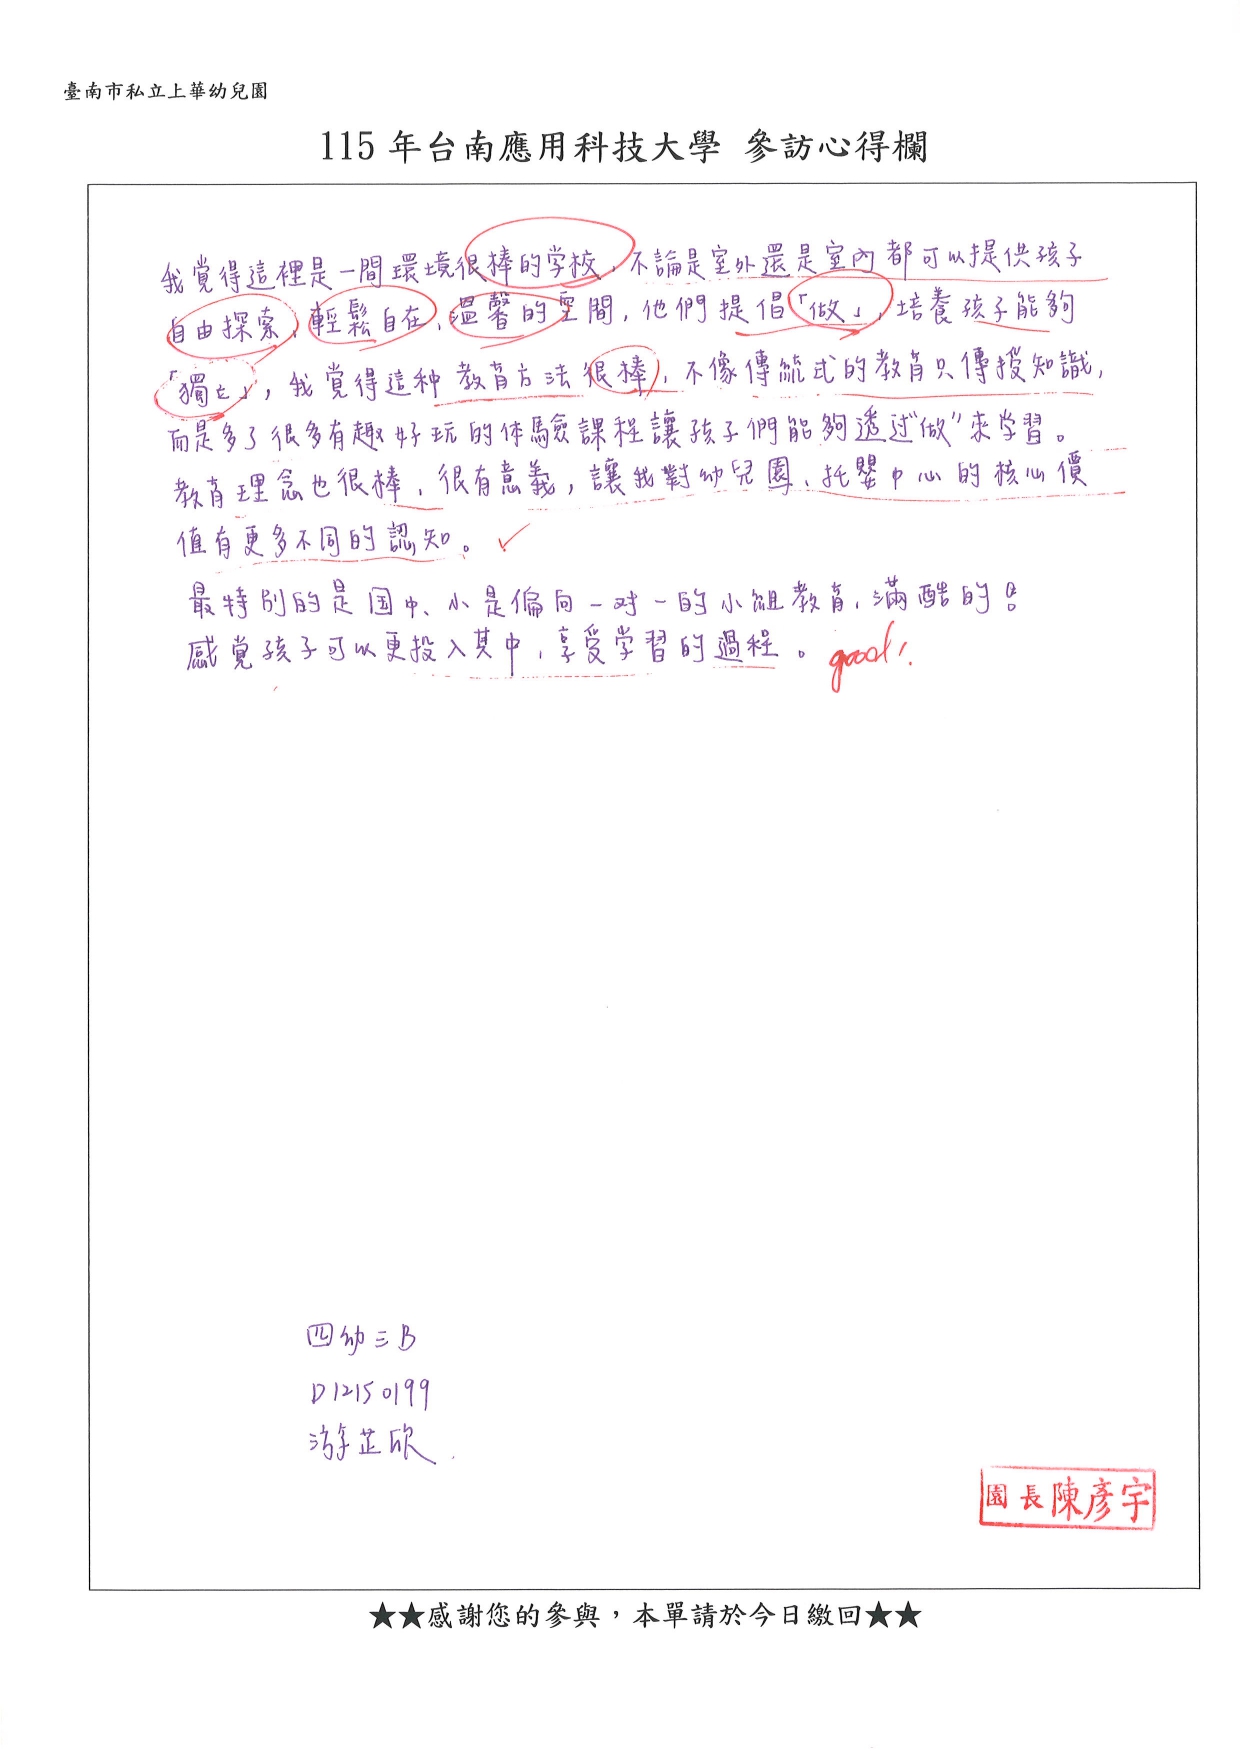 臺南市私立上華幼兒園
115 年台南應用科技大學 參訪心得欄
我覺得這裡是一間環境很棒的学校，不論是室外還是室內都可以提供孩子
自由探索、輕鬆自在、溫馨的空間，他們提倡「做」，培養孩子能夠
「獨立」，我覺得這种教育方法很棒，不像傳統式的教育只傳授知識，
而是多了很多有趣好玩的体驗課程讓孩子們能夠透过"做"來学習。
教育理念也很棒，很有意義，讓我對幼兒園、托嬰中心的核心價
值有更多不同的認知。
最特別的是国中、小是偏向一对一的小組教育，滿酷的！
感覺孩子可以更投入其中，享受学習的過程。
good！
四幼三B
D12150199
游芷欣
園長陳彥宇
★★感謝您的參與，本單請於今日繳回★★